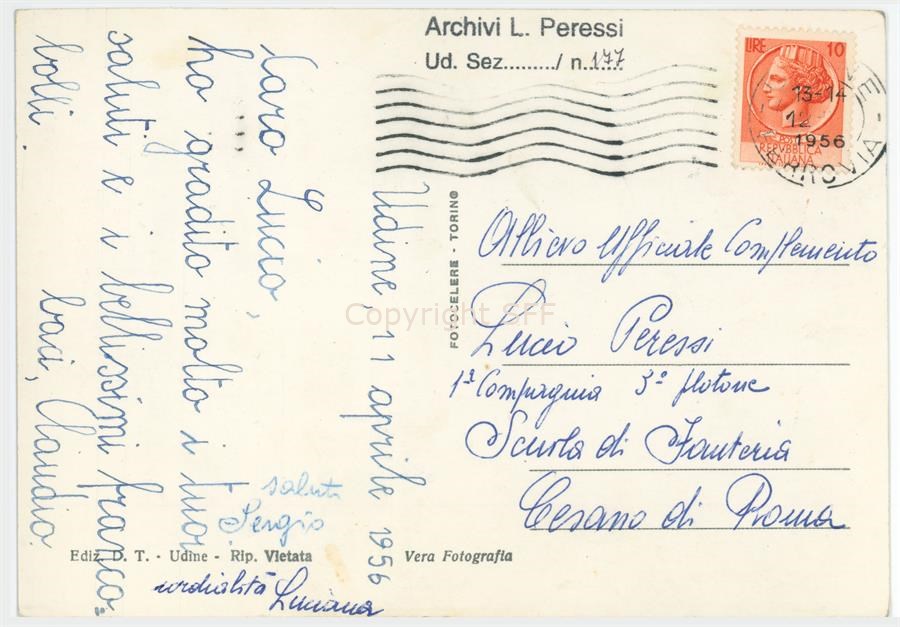 Archivi L. Peressi
Ud. Sez........./ n.177
LIRE 10
13-14
12
1956
POSTE
REPVBBLICA
ITALIANA
FERROVIA
Udine, 11 aprile 1956
Caro Lucio,
ho gradito molto i tuoi
saluti e i bellissimi franco=
bolli.
baci, Claudio
saluti
Sergio
cordialità Luciana
Ediz. D. T. - Udine - Rip. Vietata
Vera Fotografia
FOTOCELERE - TORINO
Allievo Ufficiale Complemento
Lucio Peressi
1ª Compagnia 3° plotone
Scuola di Fanteria
Cesano di Roma
Copyright SFF